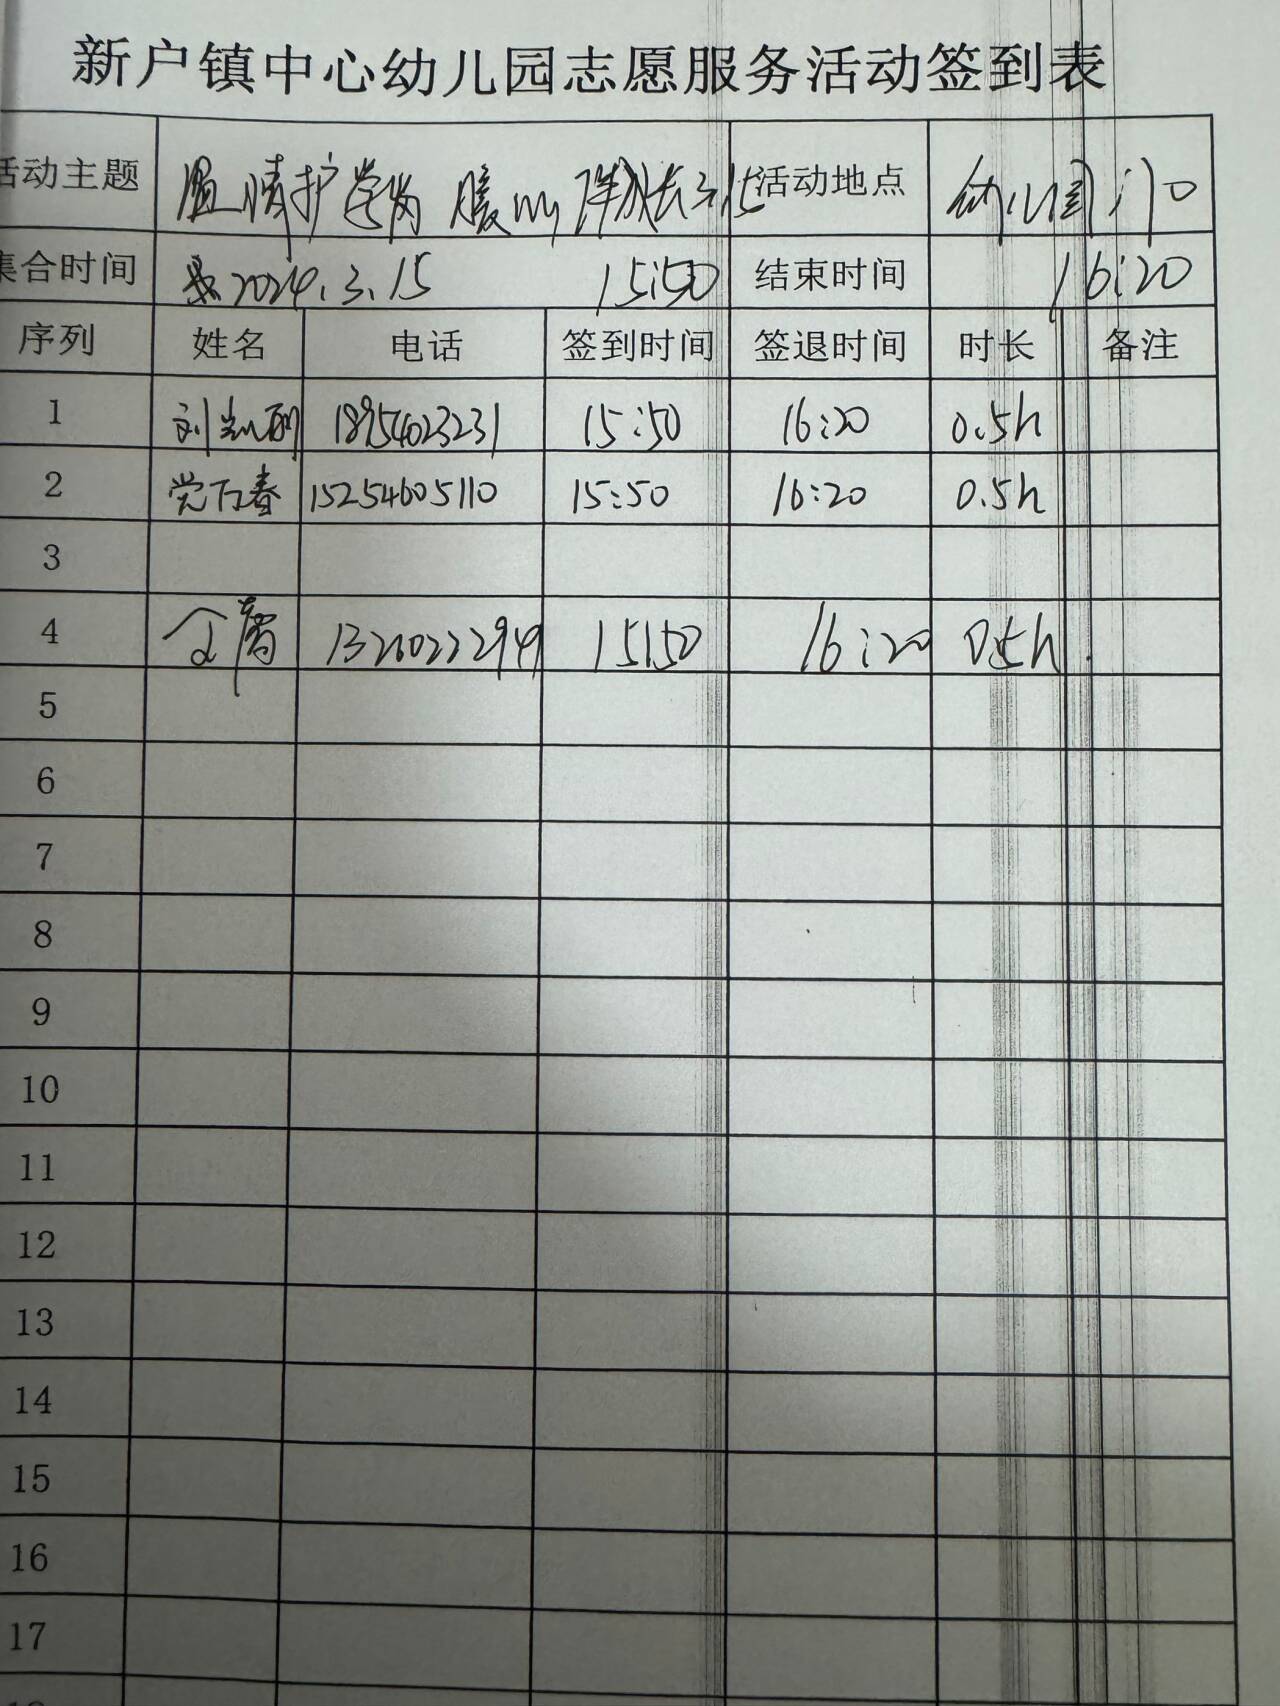 新户镇中心幼儿园志愿服务活动签到表
活动主题 温情护学岗 暖心伴成长 活动地点 幼儿园门口
集合时间 2024.3.15 15:50 结束时间 16:20
序列 姓名 电话 签到时间 签退时间 时长 备注
1 刘凯丽 18954023231 15:50 16:20 0.5h
2 15254605110 15:50 16:20 0.5h
3
4 15:50 16:20 0.5h
5
6
7
8
9
10
11
12
13
14
15
16
17